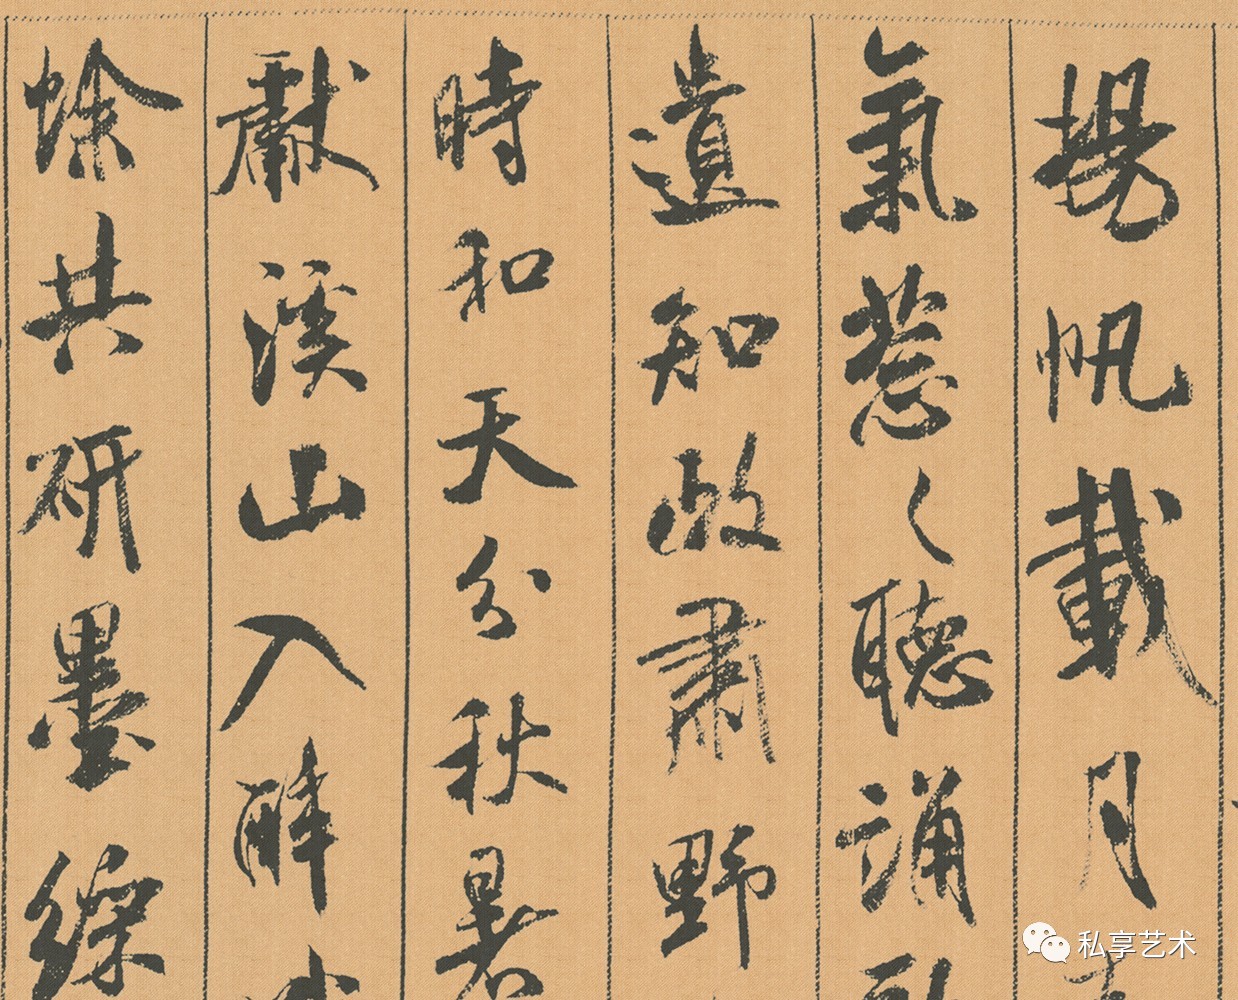 揚帆載月
氣葱々聽誦
遺知政肅野
時和天分秋暑
獻溪山入醉
蜍共研墨綵
私享艺术